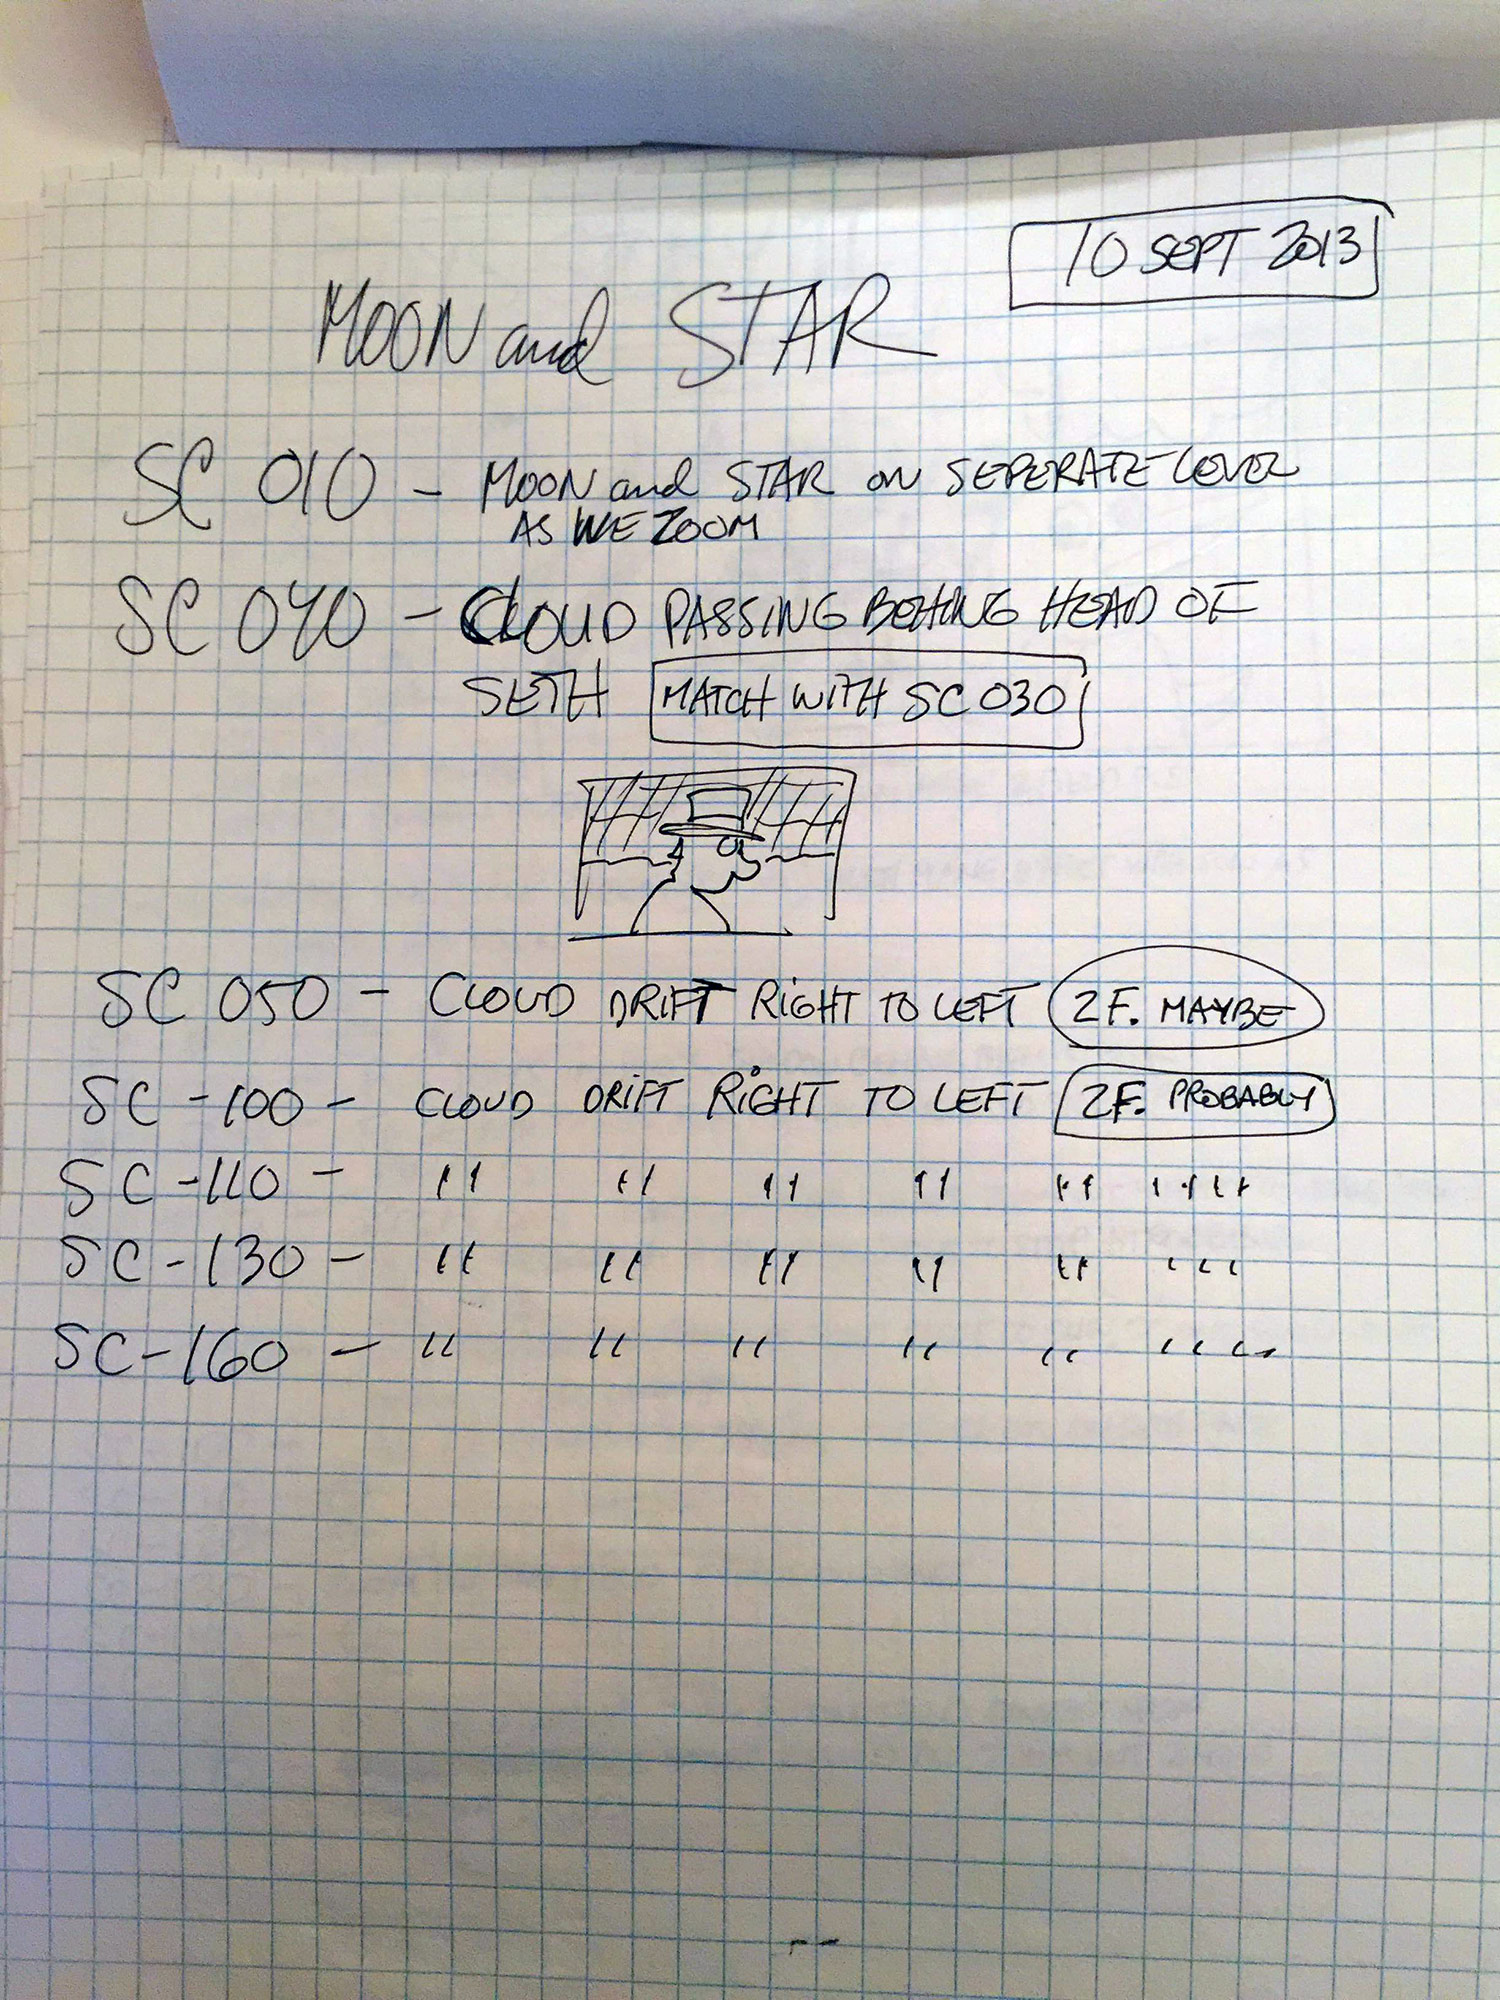 10 SEPT 2013
MOON and STAR
SC 010 - MOON and STAR ON SEPERATE LEVEL
AS WE ZOOM
SC 040 - CLOUD PASSING BEHING HEAD OF
SETH MATCH WITH SC 030
SC 050 - CLOUD DRIFT RIGHT TO LEFT 2F. MAYBE
SC - 100 - CLOUD DRIFT RIGHT TO LEFT 2F. PROBABLY
SC - 110 - " " " " " " "
SC - 130 - " " " " " ' ' '
SC - 160 - " " " " " ' ' ' '